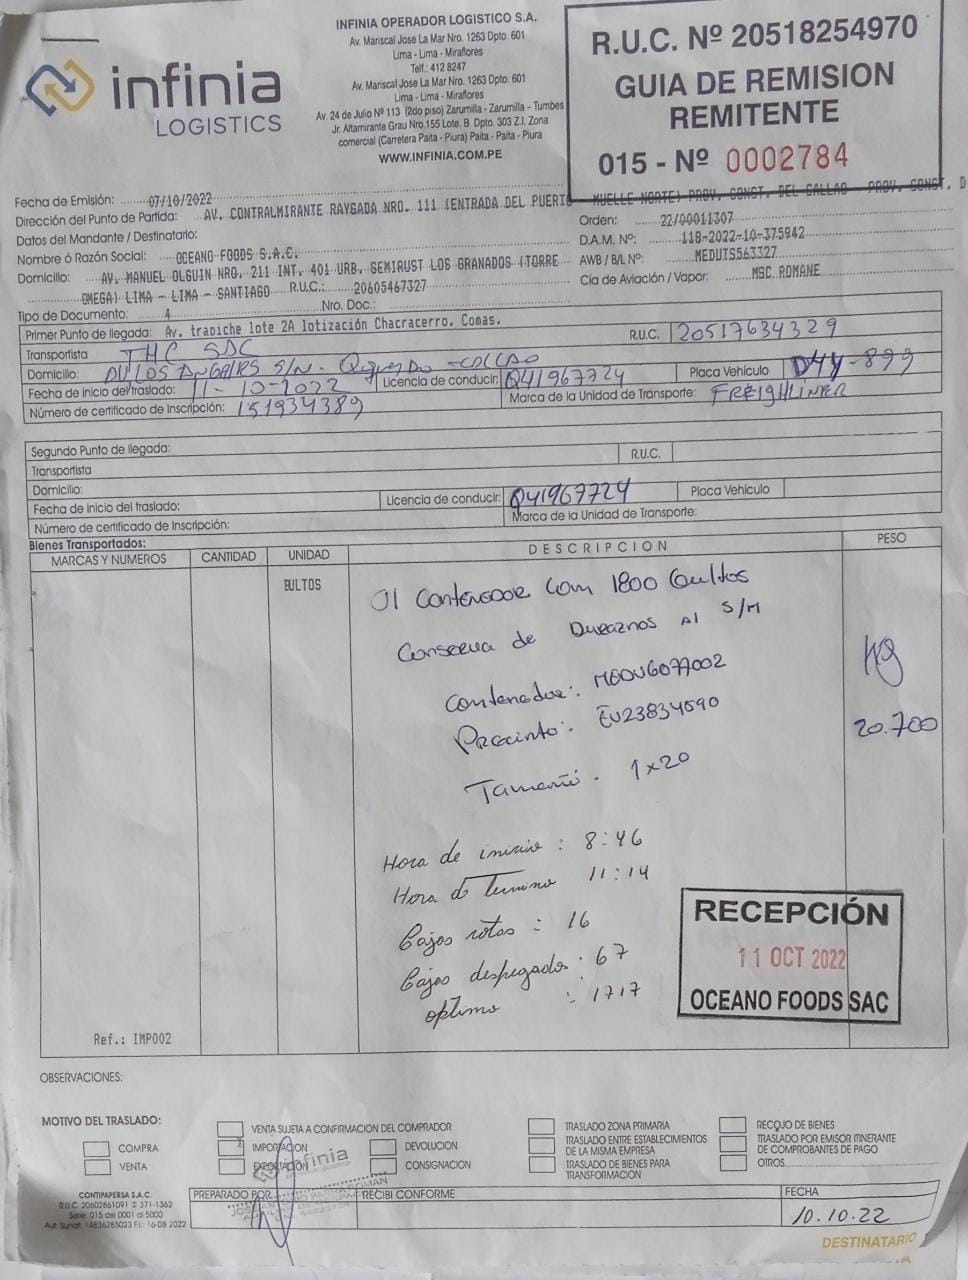 infinia
LOGISTICS
INFINIA OPERADOR LOGISTICO S.A.
Av. Mariscal Jose La Mar Nro. 1263 Dpto. 601
Lima - Lima - Miraflores
Telf.: 412 8247
Av. Mariscal Jose La Mar Nro. 1263 Dpto. 601
Lima - Lima - Miraflores
Av. 24 de Julio Nº 113 (2do piso) Zarumilla - Zarumilla - Tumbes
Jr. Altamirante Grau Nro.155 Lote. B Dpto. 303 Z.I. Zona
comercial (Carretera Paita - Piura) Paita - Paita - Piura
WWW.INFINIA.COM.PE
R.U.C. Nº 20518254970
GUIA DE REMISION
REMITENTE
015 - Nº 0002784
Fecha de Emisión: 07/10/2022
Dirección del Punto de Partida: AV. CONTRALMIRANTE RAYGADA NRO. 111 (ENTRADA DEL PUERTO MUELLE NORTE) PROV. CONST. DEL CALLAO - PROV. CONST. D
Datos del Mandante / Destinatario:
Orden: 22/00011307
Nombre ó Razón Social: OCEANO FOODS S.A.C.
D.A.M. Nº: 118-2022-10-375942
Domicilio: AV. MANUEL OLGUIN NRO. 211 INT. 401 URB. SEMIRUST LOS GRANADOS (TORRE
AWB / B/L Nº: MEDUTS563327
OMEGA) LIMA - LIMA - SANTIAGO R.U.C.: 20605467327
Cía de Aviación / Vapor: MSC. ROMANE
Tipo de Documento: 4 Nro. Doc.:
Primer Punto de llegada: Av. trapiche lote 2A lotización Chacracerro. Comas.
R.U.C. 20517634329
Transportista THC SAC
Domicilio: AV LOS ANGARES S/N. Oquendo - CALLAO
Fecha de inicio del traslado: 11-10-2022 Licencia de conducir: Q41967724 Placa Vehículo D4Y-899
Número de certificado de Inscripción: 151934389 Marca de la Unidad de Transporte: FREIGHLINER
Segundo Punto de llegada:
R.U.C.
Transportista
Domicilio:
Fecha de inicio del traslado: Licencia de conducir: Q41967724 Placa Vehículo
Número de certificado de Inscripción: Marca de la Unidad de Transporte:
Bienes Transportados:
MARCAS Y NUMEROS CANTIDAD UNIDAD DESCRIPCION PESO
BULTOS
01 Contenedor Com 1800 Bultos
Conserva de Duraznos Al S/M
Contenedor: MEDU6077002
Kg
Precinto: EU23834590
20.700
Tamaño. 1x20
Hora de inicio : 8:46
Hora de Termino 11:14
Cajas rotas : 16
Cajas despegado : 67
optimo : 1717
RECEPCIÓN
11 OCT 2022
OCEANO FOODS SAC
Ref.: IMP002
OBSERVACIONES:
MOTIVO DEL TRASLADO:
COMPRA
VENTA
VENTA SUJETA A CONFIRMACION DEL COMPRADOR
IMPORTACION
EXPORTACION
DEVOLUCION
CONSIGNACION
TRASLADO ZONA PRIMARIA
TRASLADO ENTRE ESTABLECIMIENTOS
DE LA MISMA EMPRESA
TRASLADO DE BIENES PARA
TRANSFORMACION
RECOJO DE BIENES
TRASLADO POR EMISOR ITINERANTE
DE COMPROBANTES DE PAGO
OTROS
infinia
CONTIPAPERSA S.A.C.
R.U.C. 20602861091 371-1362
Serie: 015 del 0001 al 5000
Aut. Sunat: 14836285023 F.I.: 16-08-2022
PREPARADO POR
RECIBI CONFORME
FECHA
10.10.22
DESTINATARIO